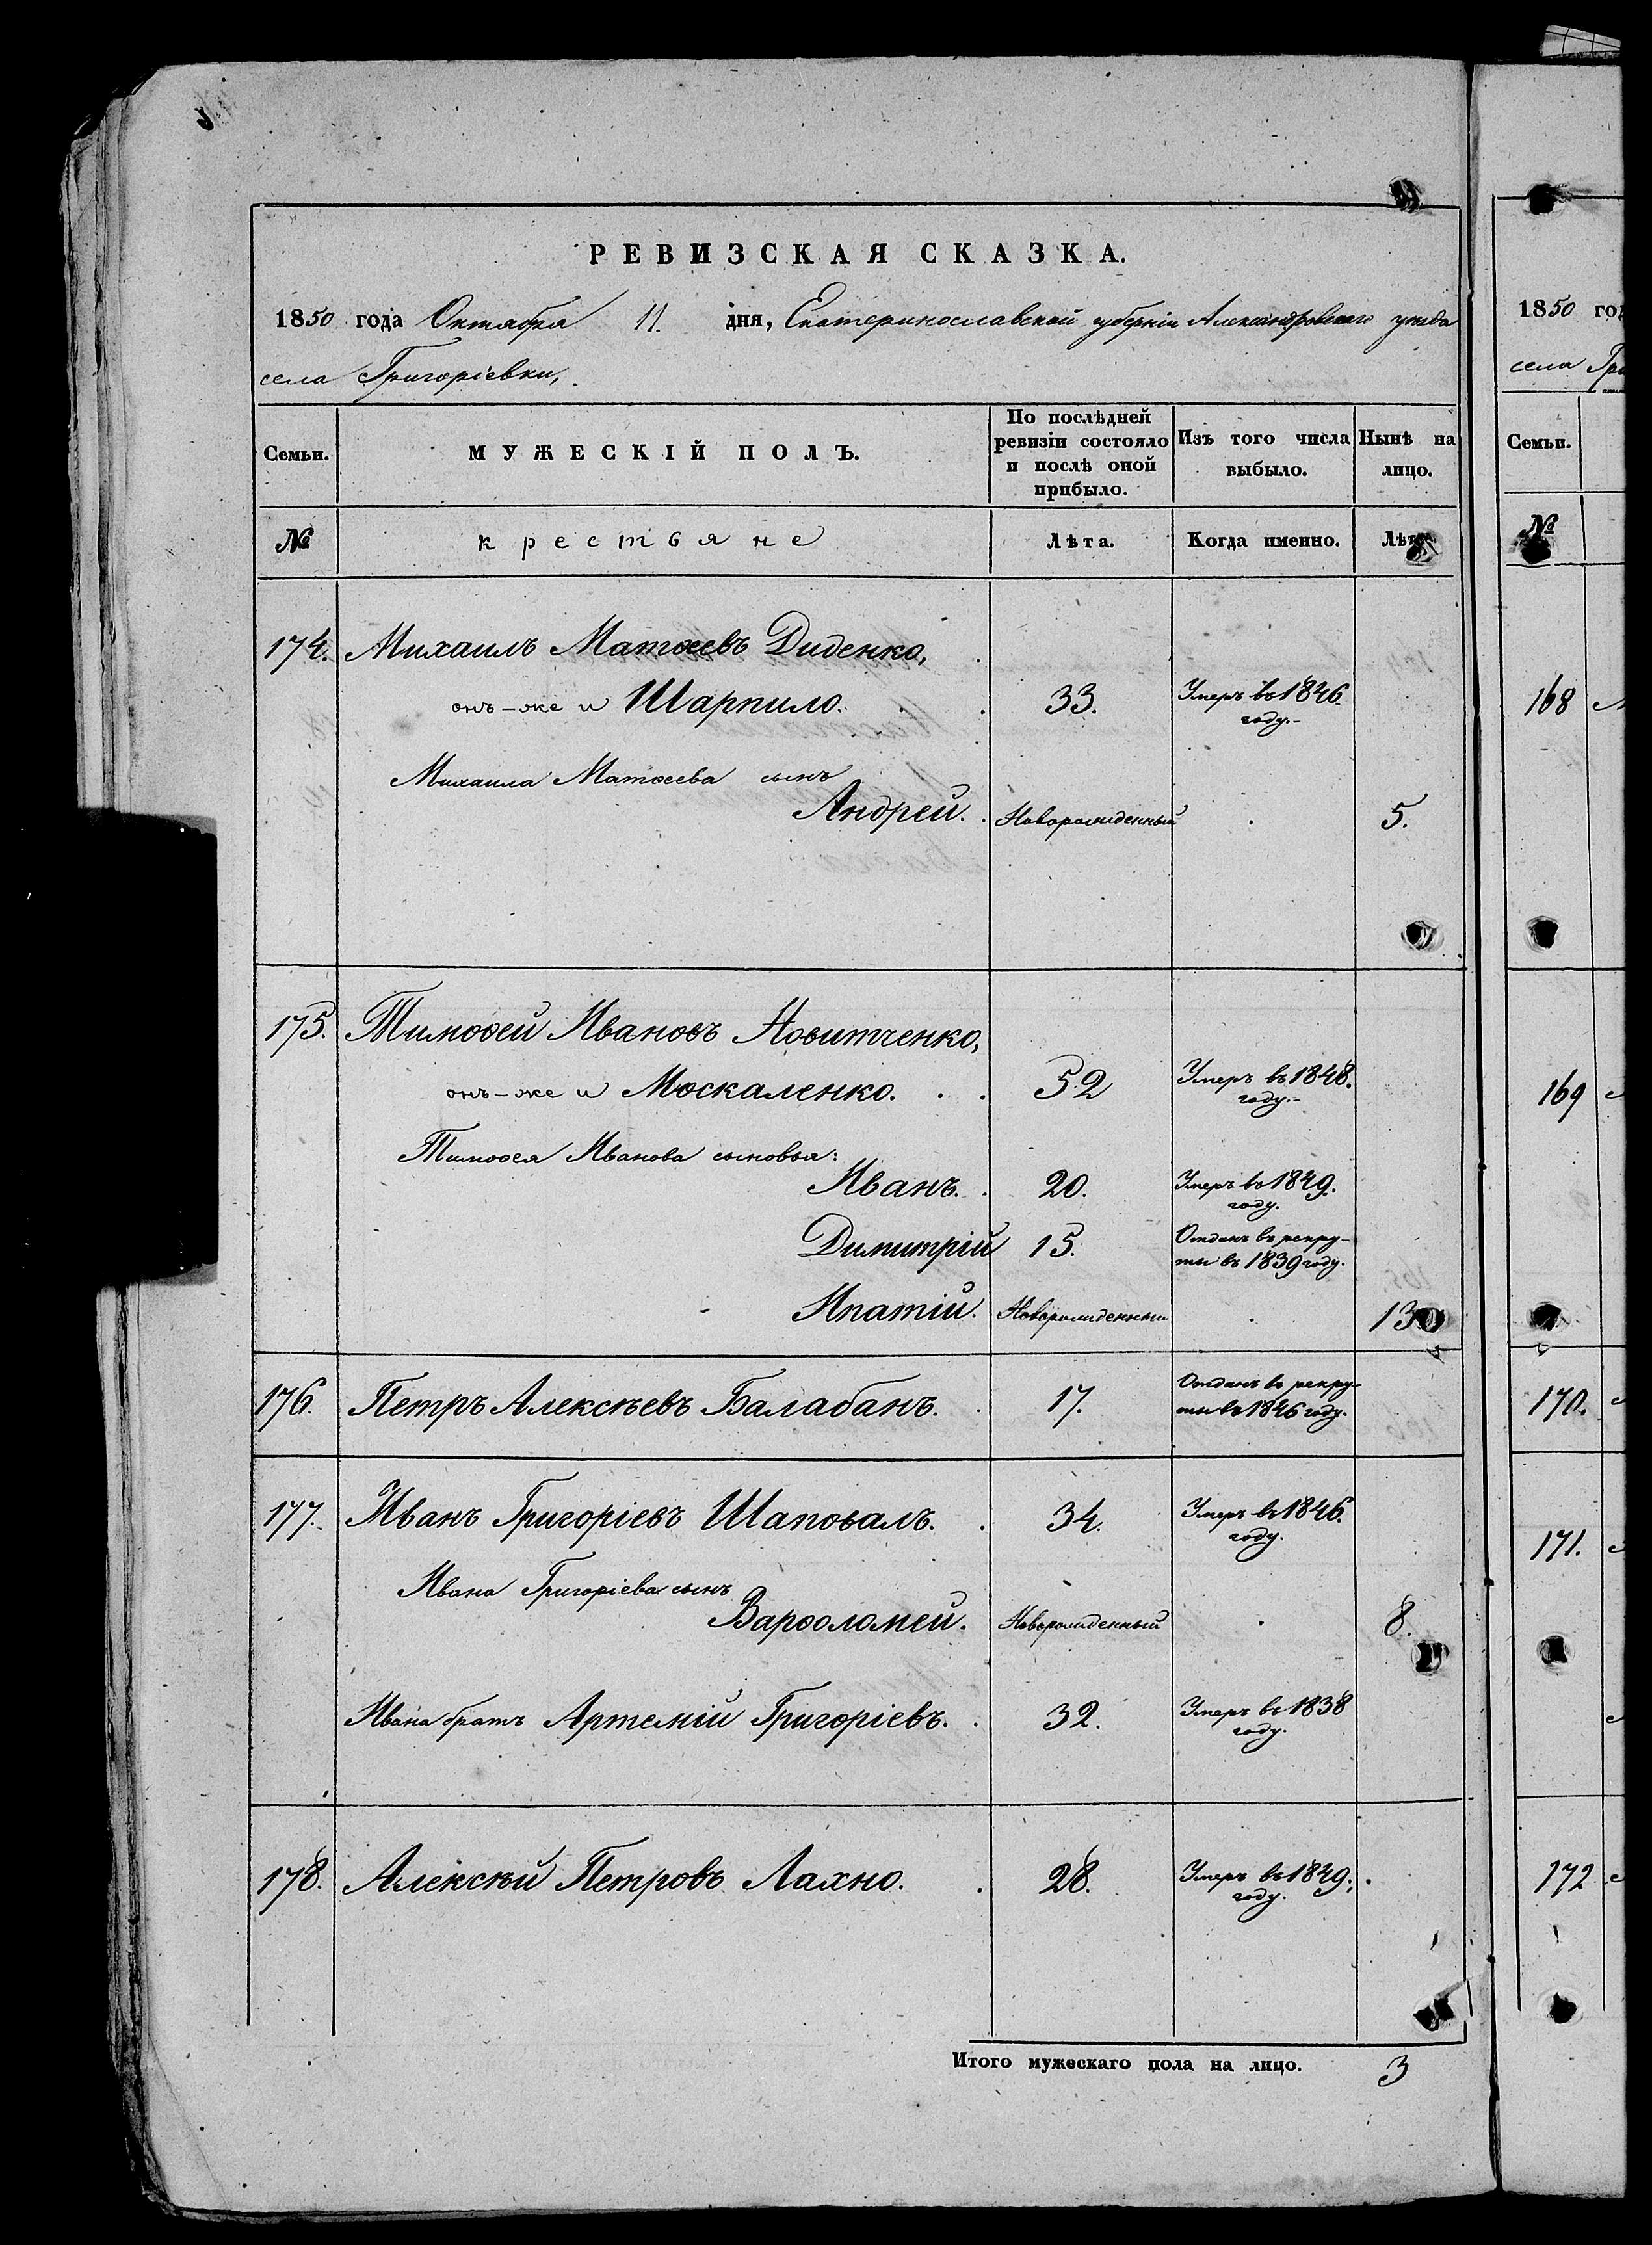 РЕВИЗСКАЯ СКАЗКА.
1850 года Октября 11. дня, Екатеринославской губерніи Александровскаго уѣзда
села Григоріевки,
Семьи. МУЖЕСКІЙ ПОЛЪ. По послѣдней ревизіи состояло и послѣ оной прибыло. Изъ того числа выбыло. Нынѣ на лицо.
№ крестьяне Лѣта. Когда именно. Лѣта.
174. Михаилъ Матѳеевъ Диденко,
онъ-же и Шарпило. 33. Умеръ въ 1846. году.
Михаила Матѳеева сынъ
Андрей. Новорожденный 5.
175. Тимоѳей Ивановъ Новитченко,
онъ-же и Москаленко. 52 Умеръ въ 1848. году.
Тимоѳея Иванова сыновья:
Иванъ. 20. Умеръ въ 1849. году.
Димитрій 15. Отданъ въ рекру-
ты въ 1839 году.
Ипатій. Новорожденный 13
176. Петръ Алексѣевъ Балабанъ. 17. Отданъ въ рекру-
ты въ 1846 году.
177. Иванъ Григоріевъ Шаповалъ. 34. Умеръ въ 1846. году.
Ивана Григоріева сынъ
Варѳоломей. Новорожденный 8.
Ивана братъ Артемій Григоріевъ. 32. Умеръ въ 1838 году.
178. Алексѣй Петровъ Лахно. 28. Умеръ въ 1849. году.
Итого мужескаго пола на лицо. 3
1850 год
села Гри
Семьи.
№
168
169
170.
171.
172